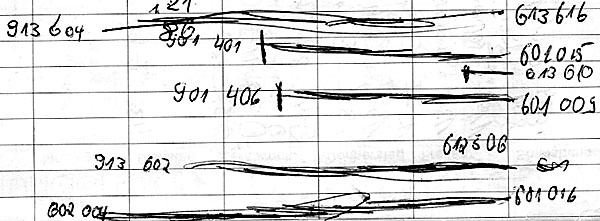 121 613 616
913 604 86
901 401 601 015
613 610
901 406 601 009
612 306
913 602
602 004 601 016